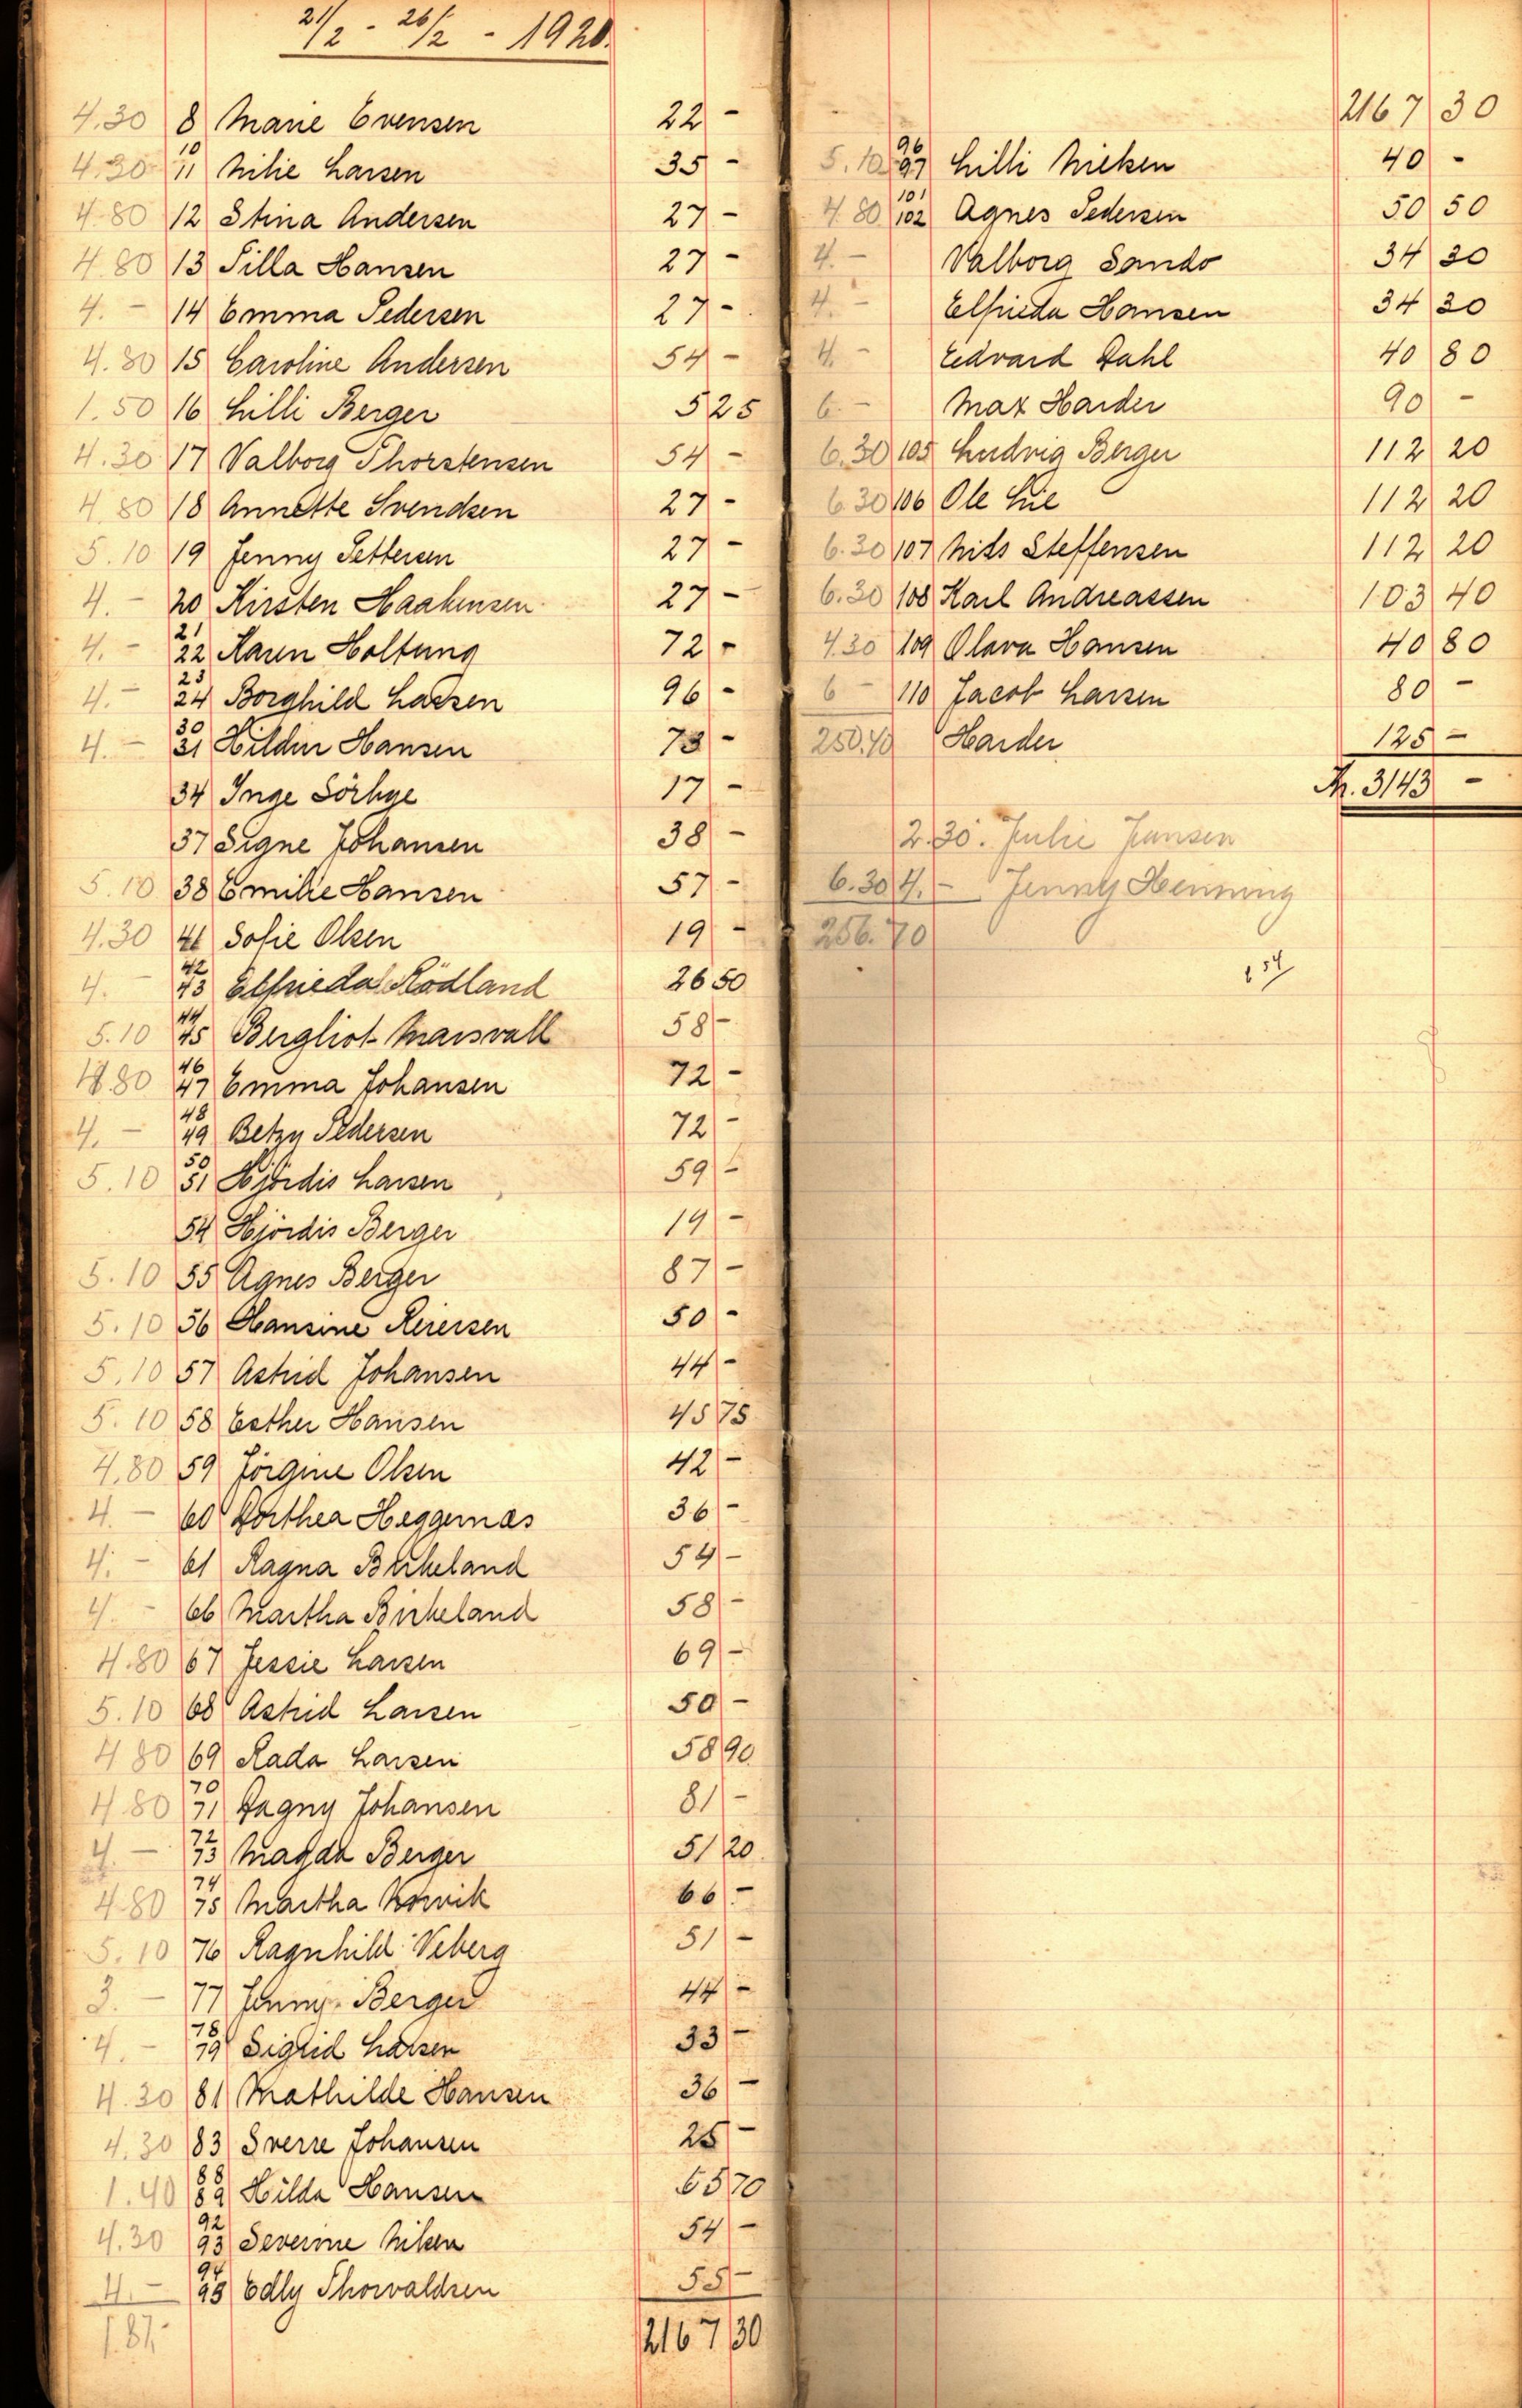 21/2 - 26/2 - 1920.
4.30 8 Marie Evensen 22 -
4.30 10 11 Milie Larsen 35 -
4.80 12 Stina Andersen 27 -
4.80 13 Tilla Hansen 27 -
4. - 14 Emma Pedersen 27 -
4.80 15 Caroline Andersen 54 -
1.50 16 Lilli Berger 5 25
4.30 17 Valborg Thorstensen 54 -
4.80 18 Annette Svendsen 27 -
5.10 19 Jenny Pettersen 27 -
4. - 20 Kirsten Haakensen 27 -
4. - 21 22 Karen Holtung 72 -
4. - 23 24 Borghild Larsen 96 -
4. - 30 31 Hildur Hansen 73 -
34 Inge Sörhye 17 -
37 Signe Johansen 38 -
5.10 38 Emilie Hansen 57 -
4.30 41 Sofie Olsen 19 -
4. - 42 43 Elfrieda Rödland 26 50
5.10 44 45 Bergliot Marsvall 58 -
4.80 46 47 Emma Johansen 72 -
4. - 48 49 Betzy Pedersen 72 -
5.10 50 51 Hjördis Larsen 59 -
54 Hjördis Berger 19 -
5.10 55 Agnes Berger 87 -
5.10 56 Hansine Reiersen 50 -
5.10 57 Astrid Johansen 44 -
5.10 58 Esther Hansen 45 75
4.80 59 Jörgine Olsen 42 -
4. - 60 Dorthea Heggernæs 36 -
4. - 61 Ragna Birkeland 54 -
4. - 66 Martha Birkeland 58 -
4.80 67 Jessie Larsen 69 -
5.10 68 Astrid Larsen 50 -
4 80 69 Rada Larsen 58 90
4.80 70 71 Dagny Johansen 81 -
4. - 72 73 Magda Berger 51 20
4.80 74 75 Martha Norvik 66 -
5.10 76 Ragnhild Veberg 51 -
3. - 77 Jenny Berger 44 -
4. - 78 79 Sigrid Larsen 33 -
4.30 81 Mathilde Hansen 36 -
4.30 83 Sverre Johansen 25 -
1.40 88 89 Hilda Hansen 65 70
4.30 92 93 Severine Nilsen 54 -
4. - 94 95 Edly Thorvaldsen 55 -
187.- 2167 30
2167 30
5.10 96 97 Lilli Nielsen 40 -
4.80 101 102 Agnes Pedersen 50 50
4. - Valborg Sando 34 20
4. - Elfrieda Hansen 34 20
4. - Edvard Dahl 40 80
6. - Max Harder 90 -
6.30 105 Ludvig Berger 112 20
6.30 106 Ole Lie 112 20
6.30 107 Nils Steffensen 112 20
6.30 108 Karl Andreassen 103 40
4.30 109 Olava Hansen 40 80
6 - 110 Jacob Larsen 80 -
250.40 Harder 125 -
Kr. 3143 -
2.30. Julie Jansen
6.30 4. - Jenny Henning
256.70